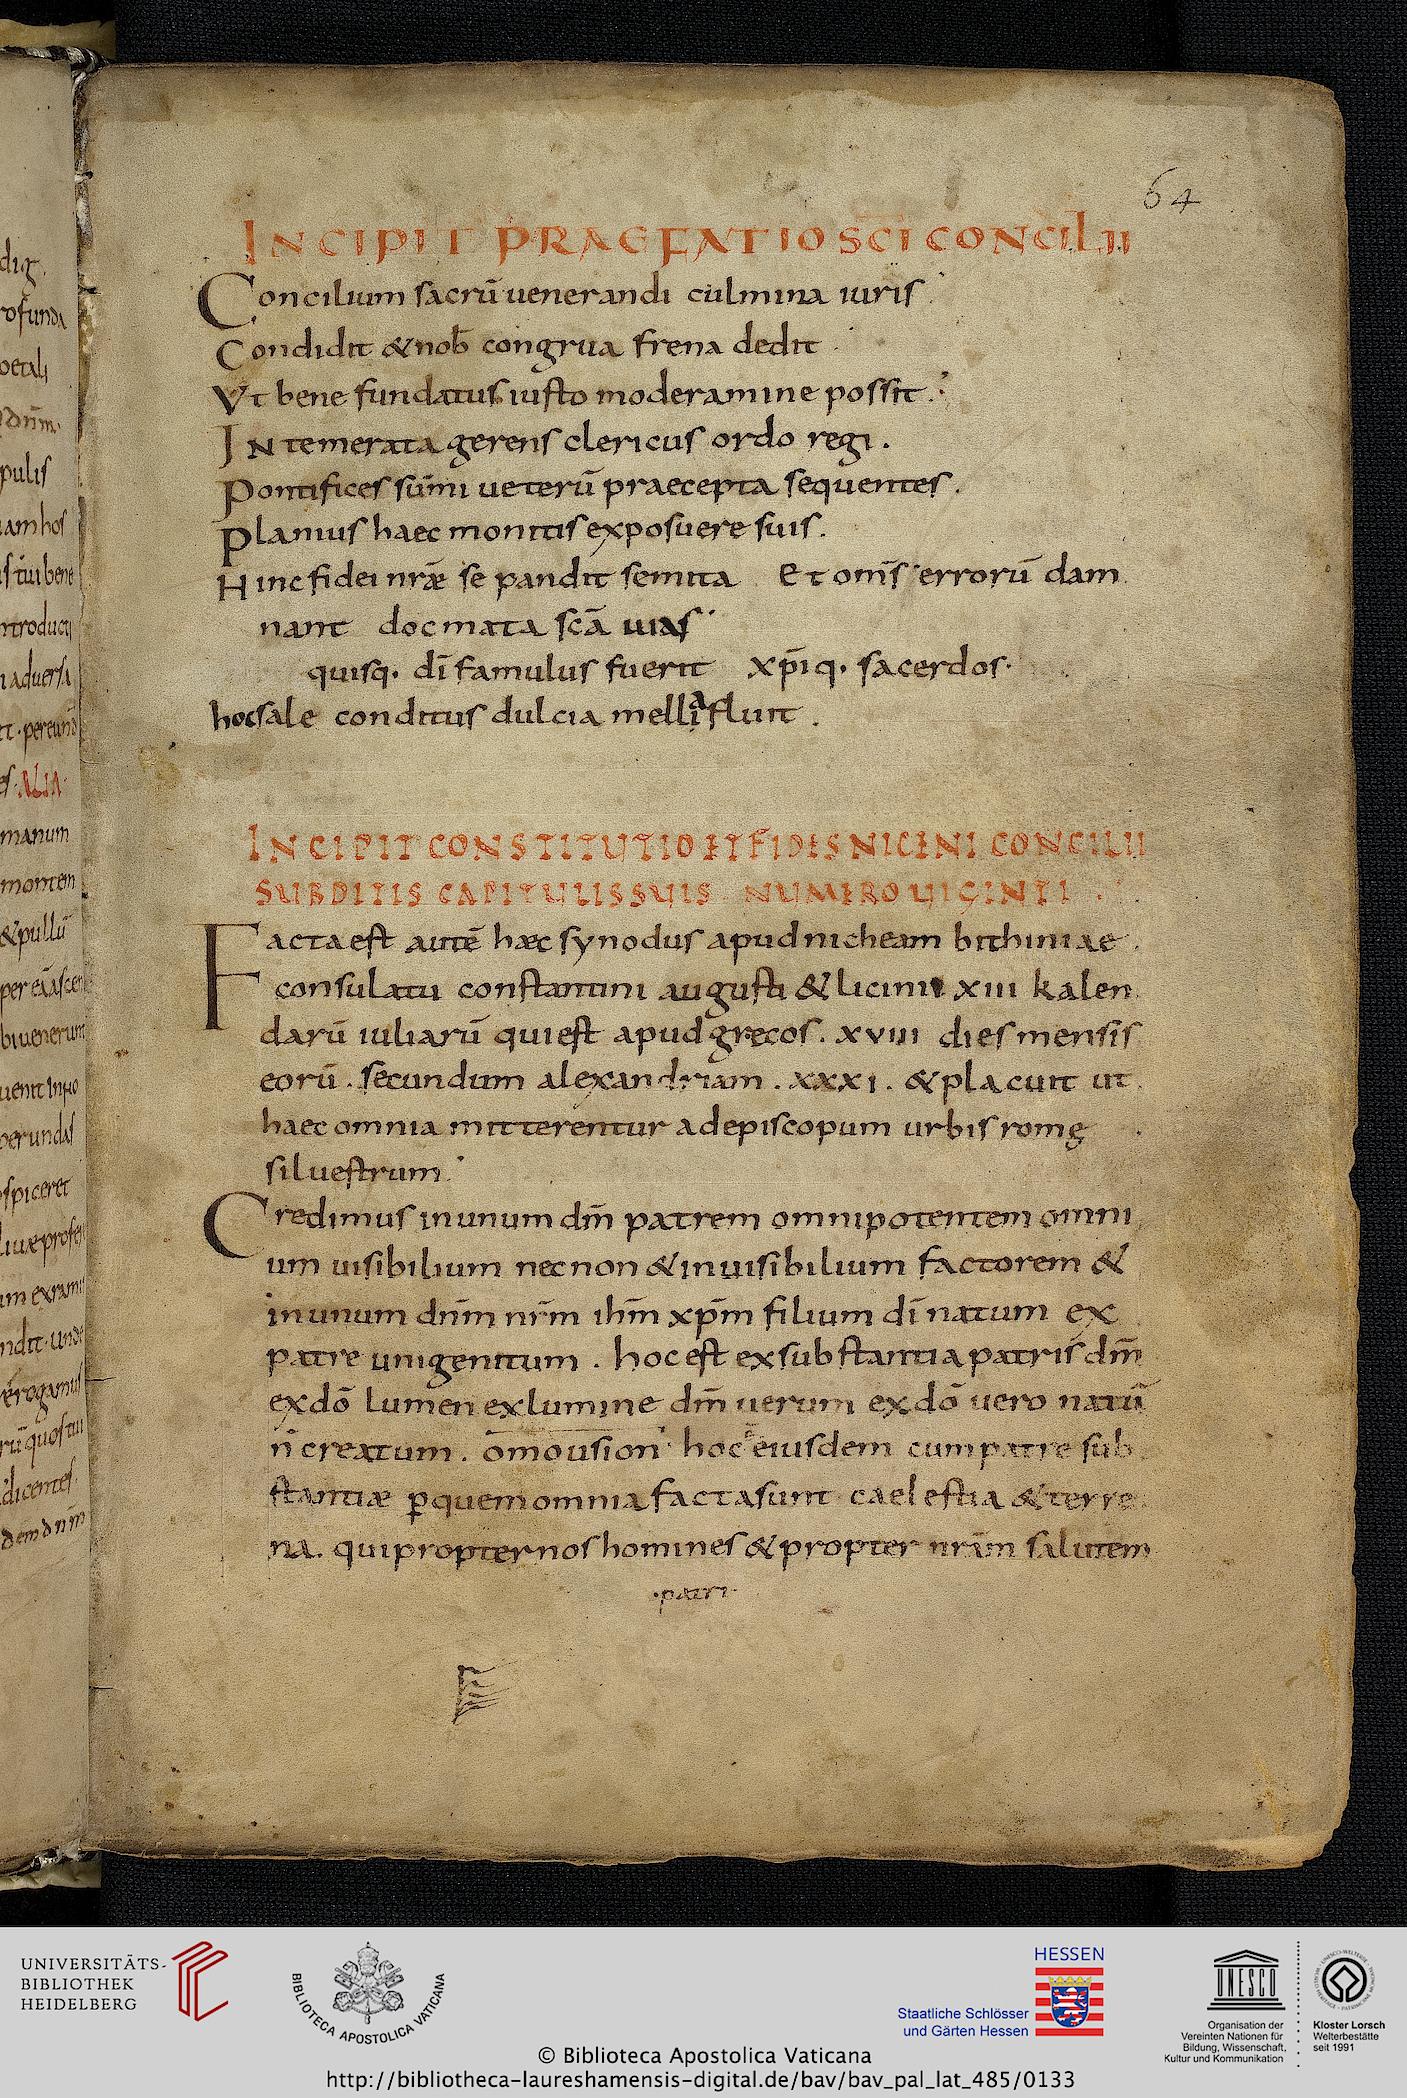 64
INCIPIT PRAEFATIO SC̄I CONCILII
Concilium sacrū uenerandi culmina iuris
Condidit & nob̄ congrua frena dedit
Vt bene fundatus iusto moderamine possit
INtemerata gerens clericus ordo regi.
Pontifices sūmi ueterū praecepta sequentes.
Planius haec monitis exposuere suis.
Hinc fidei nr̄æ se pandit semita Et om̄s errorū dam
nant docmata sc̄a uias
quisq. dī famulus fuerit xp̄iq. sacerdos.
hoc sale conditus dulcia melliafluit.
INCIPIT CONSTITUTIO ET FIDES NICENI CONCILII
SUBDITIS CAPITULIS SUIS NUMERO UIGINTI.
Facta est autē hæc synodus apud nicheam bithiniae.
consulatu constantini augusti & licinii xiii kalen
darū iuliarū qui est apud grecos. xviii dies mensis
eorū. secundum alexandriam. xxxi. & placuit ut
haec omnia mitterentur ad episcopum urbis romę
siluestrum
Credimus in unum dm̄ patrem omnipotentem omni
um uisibilium nec non & inuisibilium factorem &
in unum dn̄m nr̄m ihm̄ xp̄m filium dī natum ex
patre unigenitum. hoc est ex substantia patris dm̄
ex dō lumen ex lumine dm̄ uerum ex dō uero natū
n̄ creatum. omousion hoc ē eiusdem cum patre sub
stantiæ ꝑ quem omnia facta sunt caelestia & terre
na. qui propter nos homines & propter nr̄am salutem
.patri.
dig.
ofunda
oetali
dn̄m.
pulis
am hos
s tui bene
ntroducti
aduersa
et. pereund
es. ALIA.
manum
montem
& pullū
per eā ascen
bi uenerunt
uenit in
per undas
spiceret
um ex
ndit. unde
erogamus
rū quos tui
dicentes.
dem dn̄m
UNIVERSITÄTS-
BIBLIOTHEK
HEIDELBERG
BIBLIOTECA APOSTOLICA VATICANA
HESSEN
Staatliche Schlösser
und Gärten Hessen
UNESCO
Organisation der
Vereinten Nationen für
Bildung, Wissenschaft,
Kultur und Kommunikation
Kloster Lorsch
Welterbestätte
seit 1991
© Biblioteca Apostolica Vaticana
http://bibliotheca-laureshamensis-digital.de/bav/bav_pal_lat_485/0133